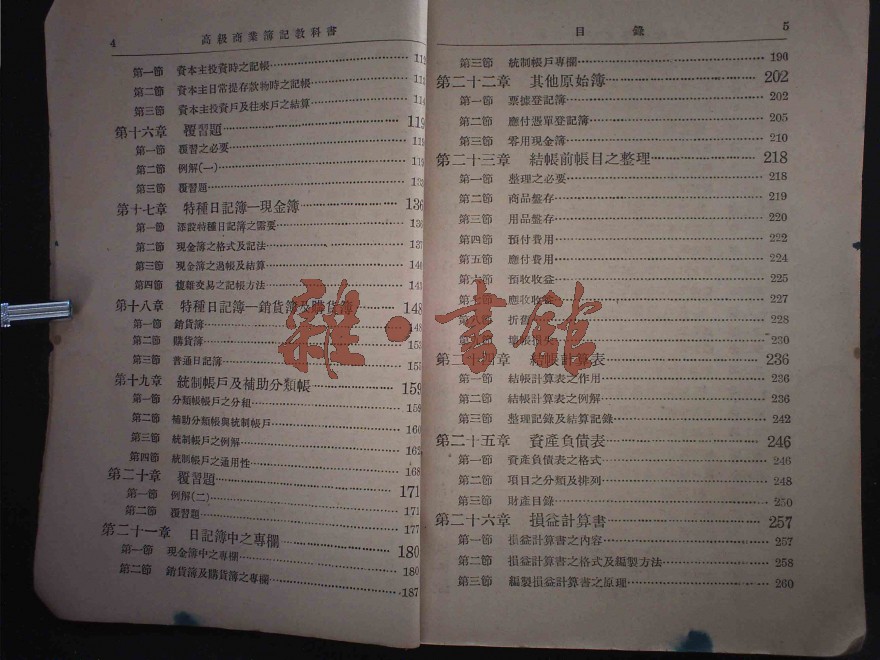 4 高級商業簿記教科書
第一節 資本主投資時之記帳
第二節 資本主日常提存款物時之記帳
第三節 資本主投資戶及往來戶之結算
第十六章 覆習題 119
第一節 覆習之必要 119
第二節 例解(一)
第三節 覆習題
第十七章 特種日記簿—現金簿 136
第一節 添設特種日記簿之需要 136
第二節 現金簿之格式及記法 137
第三節 現金簿之過帳及結算
第四節 複雜交易之記帳方法
第十八章 特種日記簿—銷貨簿及購貨簿 148
第一節 銷貨簿 148
第二節 購貨簿
第三節 普通日記簿
第十九章 統制帳戶及補助分類帳 159
第一節 分類帳帳戶之分組 159
第二節 補助分類帳與統制帳戶 160
第三節 統制帳戶之例解 162
第四節 統制帳戶之適用性 168
第二十章 覆習題 171
第一節 例解(二) 171
第二節 覆習題 177
第二十一章 日記簿中之專欄 180
第一節 現金簿中之專欄 180
第二節 銷貨簿及購貨簿之專欄 187
目錄 5
第三節 統制帳戶專欄 190
第二十二章 其他原始簿 202
第一節 票據登記簿 202
第二節 應付憑單登記簿 205
第三節 零用現金簿 210
第二十三章 結帳前帳目之整理 218
第一節 整理之必要 218
第二節 商品盤存 219
第三節 用品盤存 220
第四節 預付費用 222
第五節 應付費用 224
第六節 預收收益 225
第七節 應收收益 227
第八節 折舊 228
第九節 壞帳損失 230
第二十四章 結帳計算表 236
第一節 結帳計算表之作用 236
第二節 結帳計算表之例解 236
第三節 整理記錄及結算記錄 242
第二十五章 資產負債表 246
第一節 資產負債表之格式 246
第二節 項目之分類及排列 248
第三節 財產目錄 250
第二十六章 損益計算書 257
第一節 損益計算書之內容 257
第二節 損益計算書之格式及編製方法 258
第三節 編製損益計算書之原理 260
雜·書館